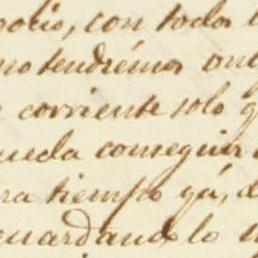 gocio, con todos l
no tendrémos ont
e corriente solo q
ueda conseguir
ra tiempo yá, d
cuardando lo